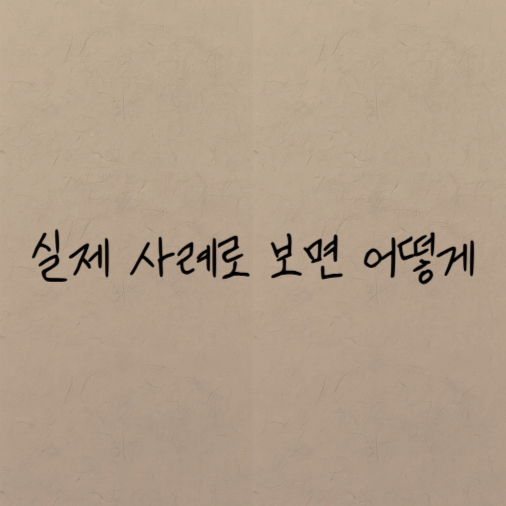 실제 사례로 보면 어떻게